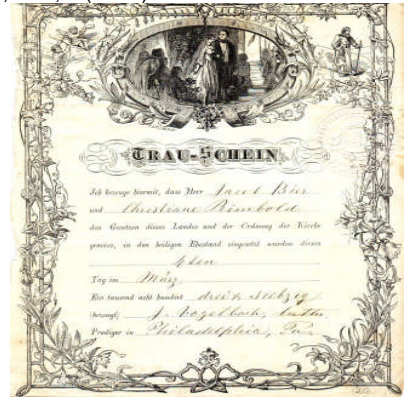 TRAU-SCHEIN.
Ich bezeuge hiermit, dass Herr Jacob
und Christiane Rimbold
den Gesetzen dieses Landes und der Ordnung der Kirche
gemäss, in den heiligen Ehestand eingesetzt wurden diesen
Tag im März
Ein tausend acht hundert drei & siebzig
bezeugt, J. Vogelbach,
Prediger in Philadelphia, Pa.